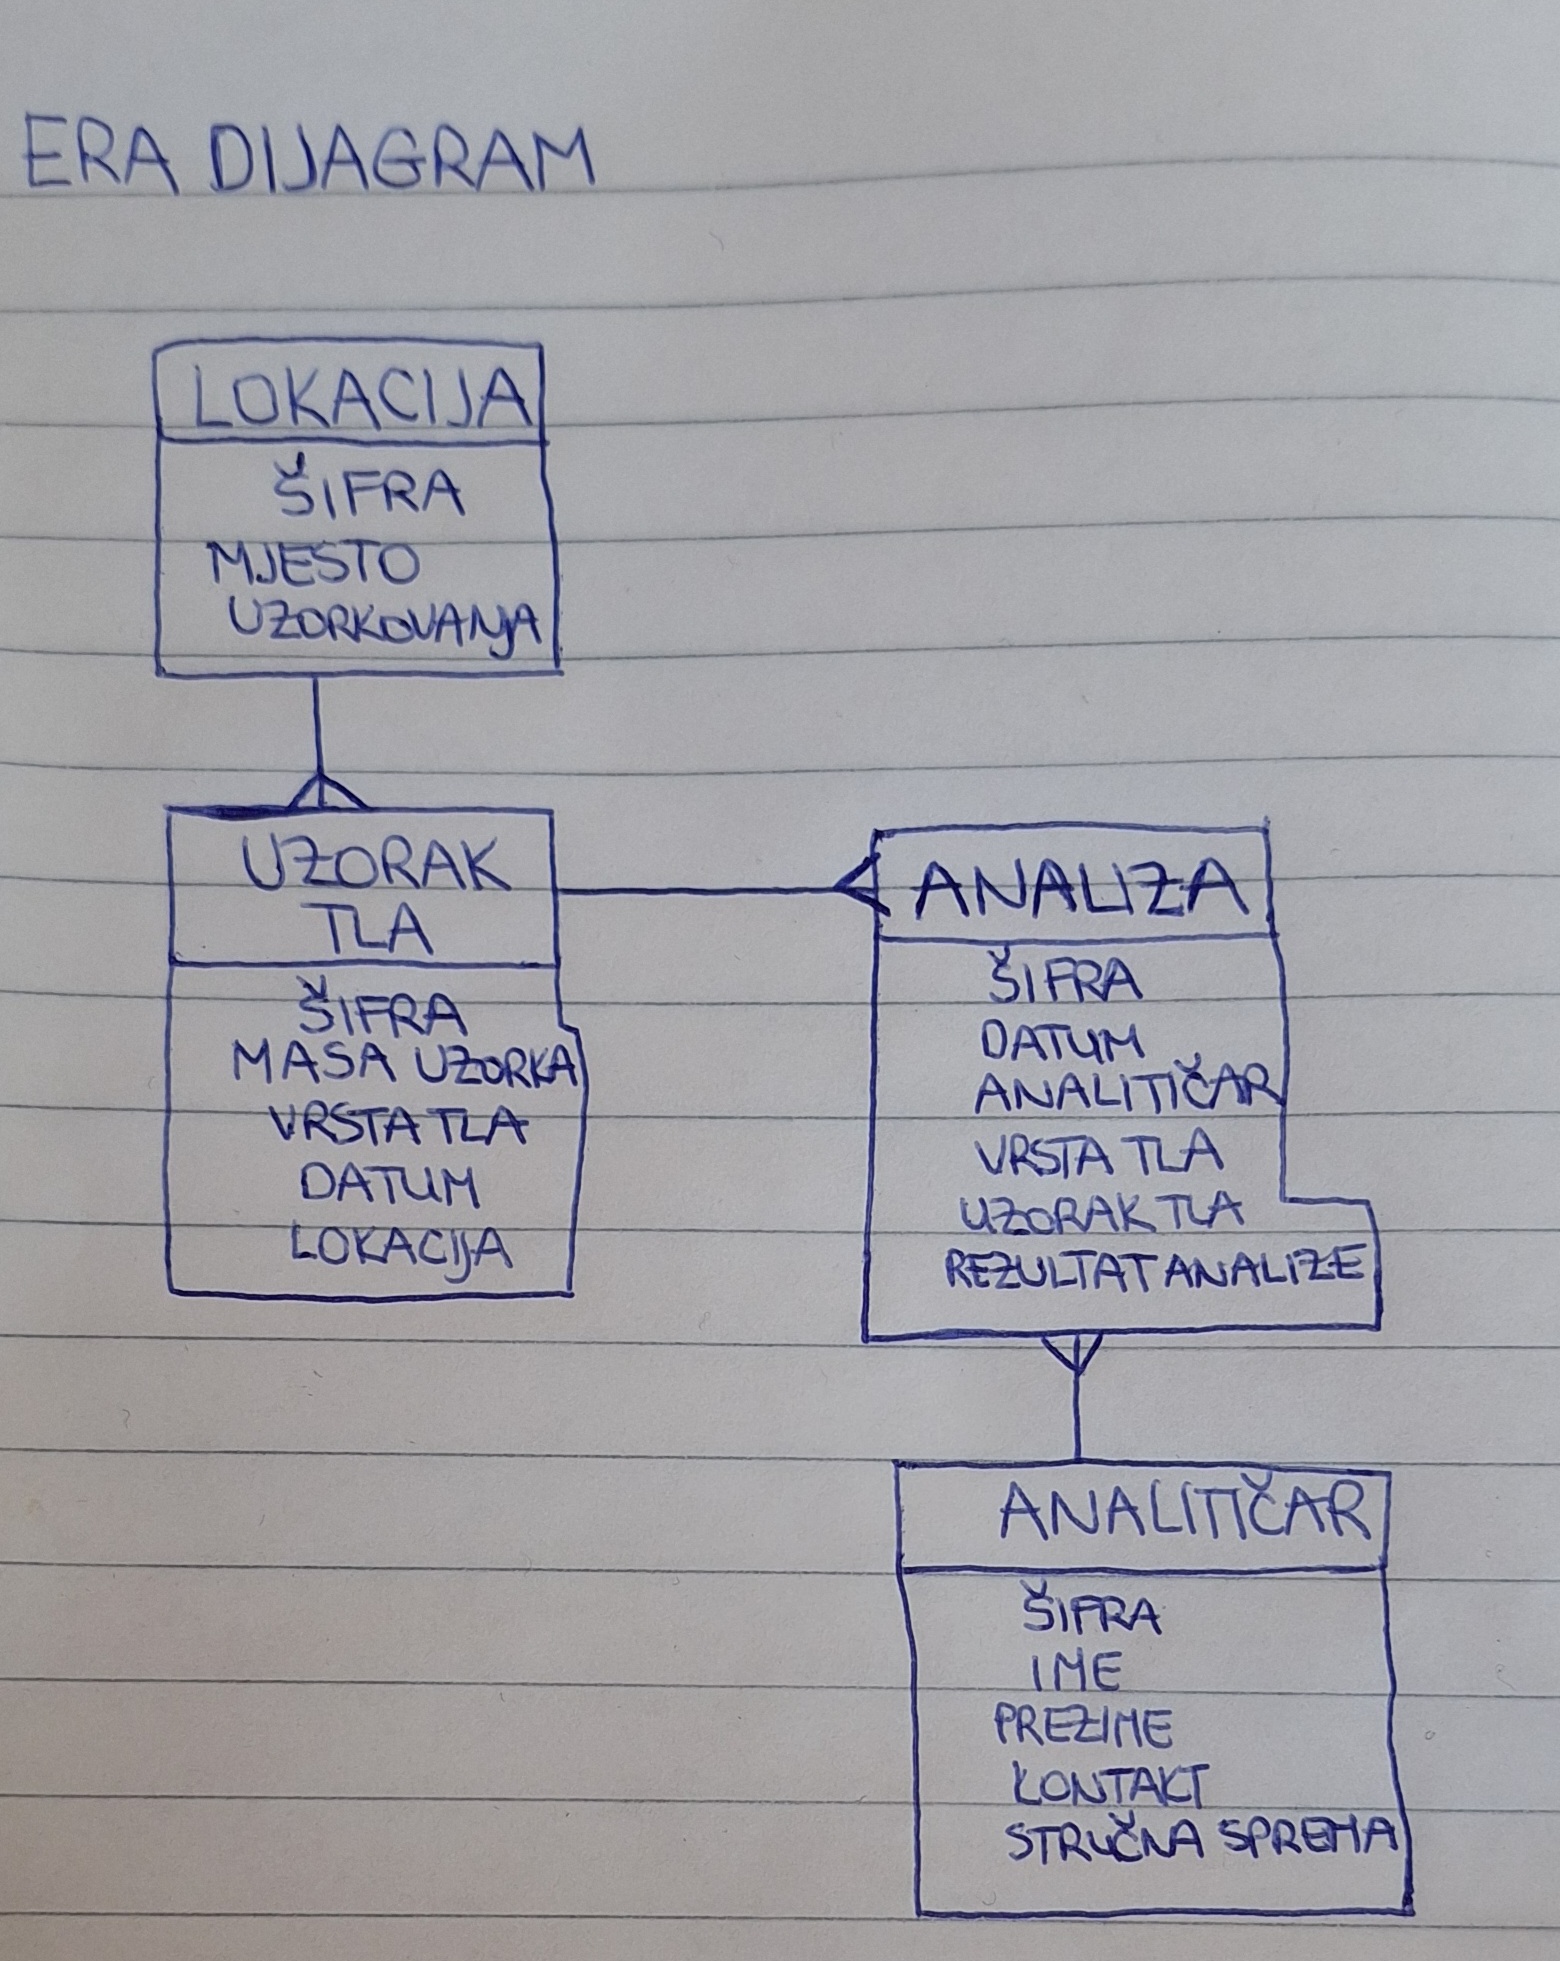 ERA DIJAGRAM
LOKACIJA
ŠIFRA
MJESTO
UZORKOVANJA
UZORAK
TLA
ŠIFRA
MASA UZORKA
VRSTA TLA
DATUM
LOKACIJA
ANALIZA
ŠIFRA
DATUM
ANALITIČAR
VRSTA TLA
UZORAK TLA
REZULTAT ANALIZE
ANALITIČAR
ŠIFRA
IME
PREZIME
KONTAKT
STRUČNA SPREMA